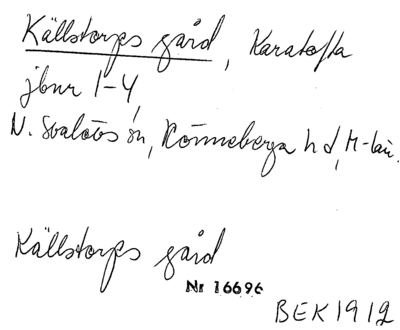 Källstorps gård, Karatofta
jbnr 1-4,
N. Svalövs sn, Rönneberga hd, M-län.
Källstorps gård
Nr 16696
BEK 1912